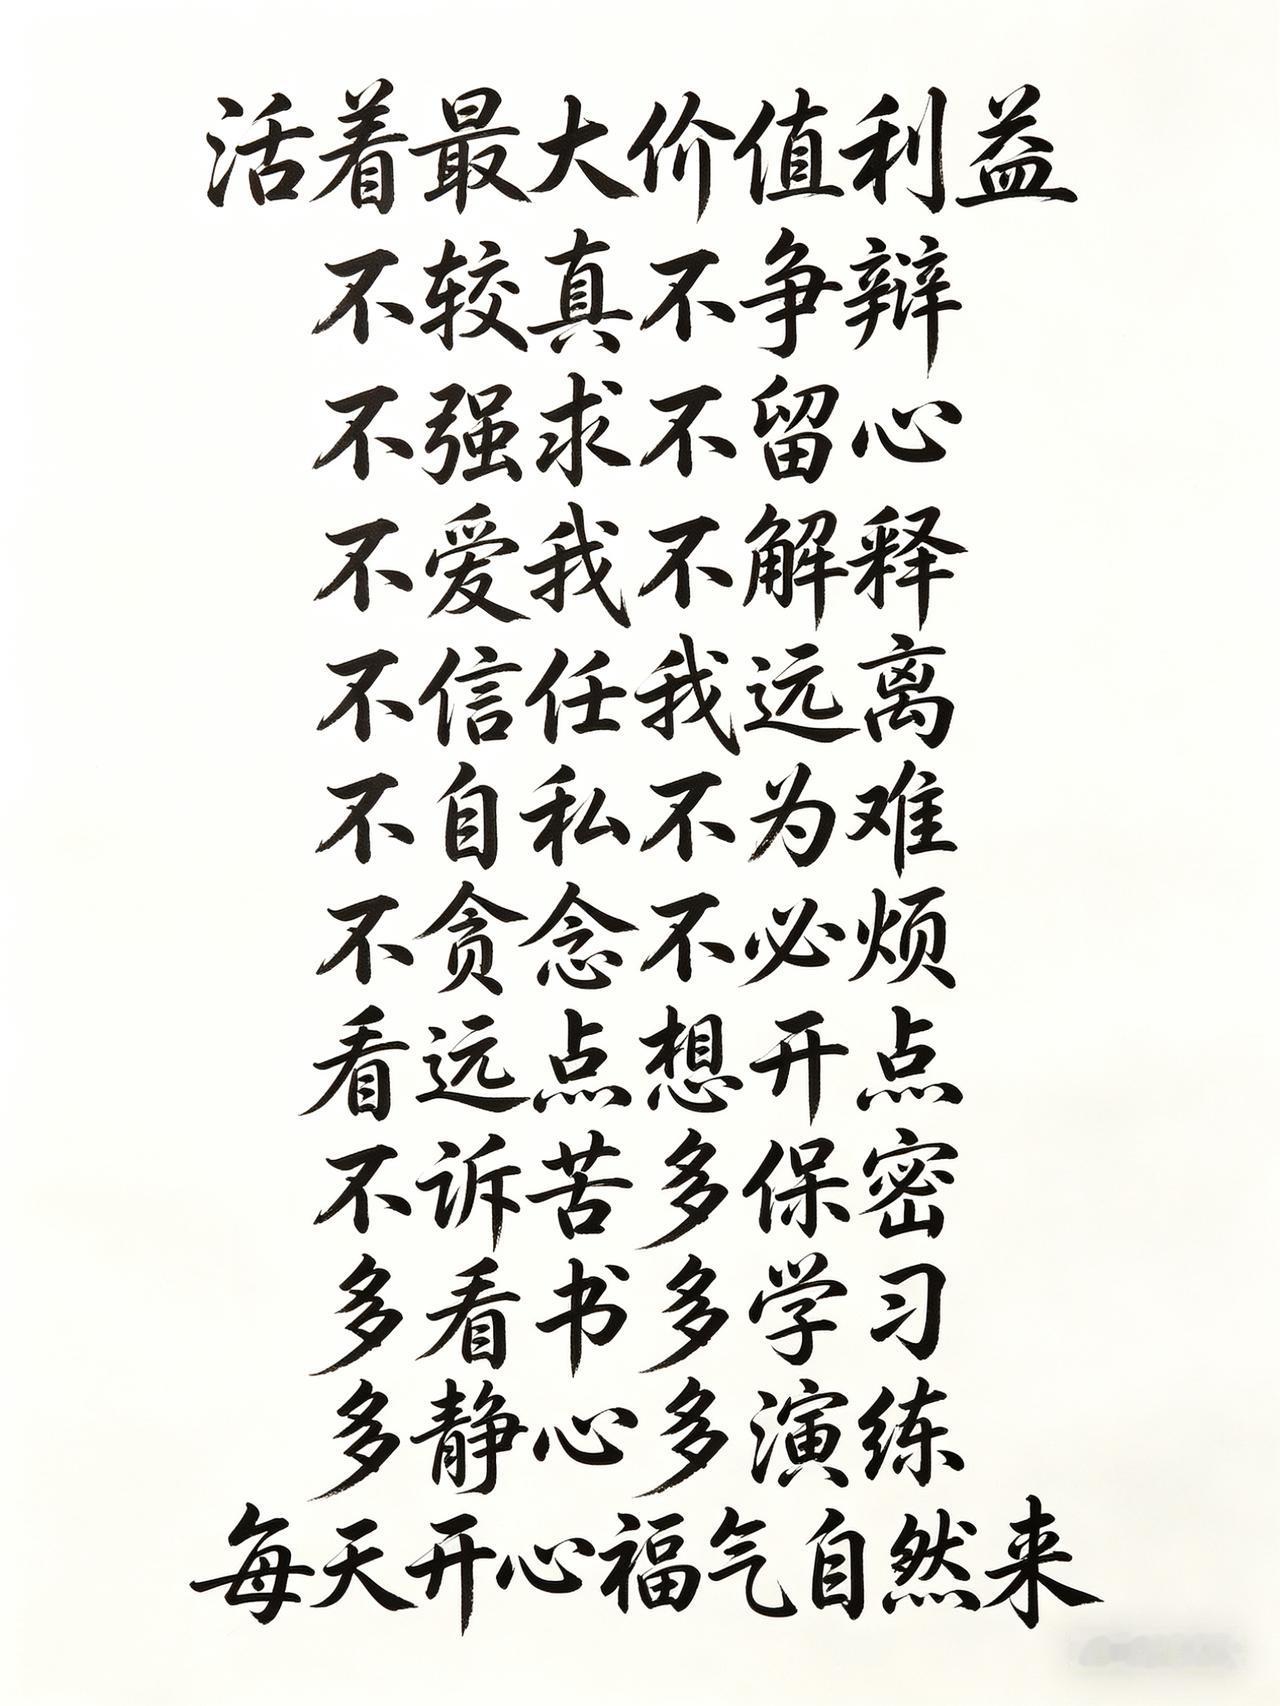 活着最大价值利益
不较真不争辩
不强求不留心
不爱我不解释
不信任我远离
不自私不为难
不贪念不必烦
看远点想开点
不诉苦多保密
多看书多学习
多静心多演练
每天开心福气自然来